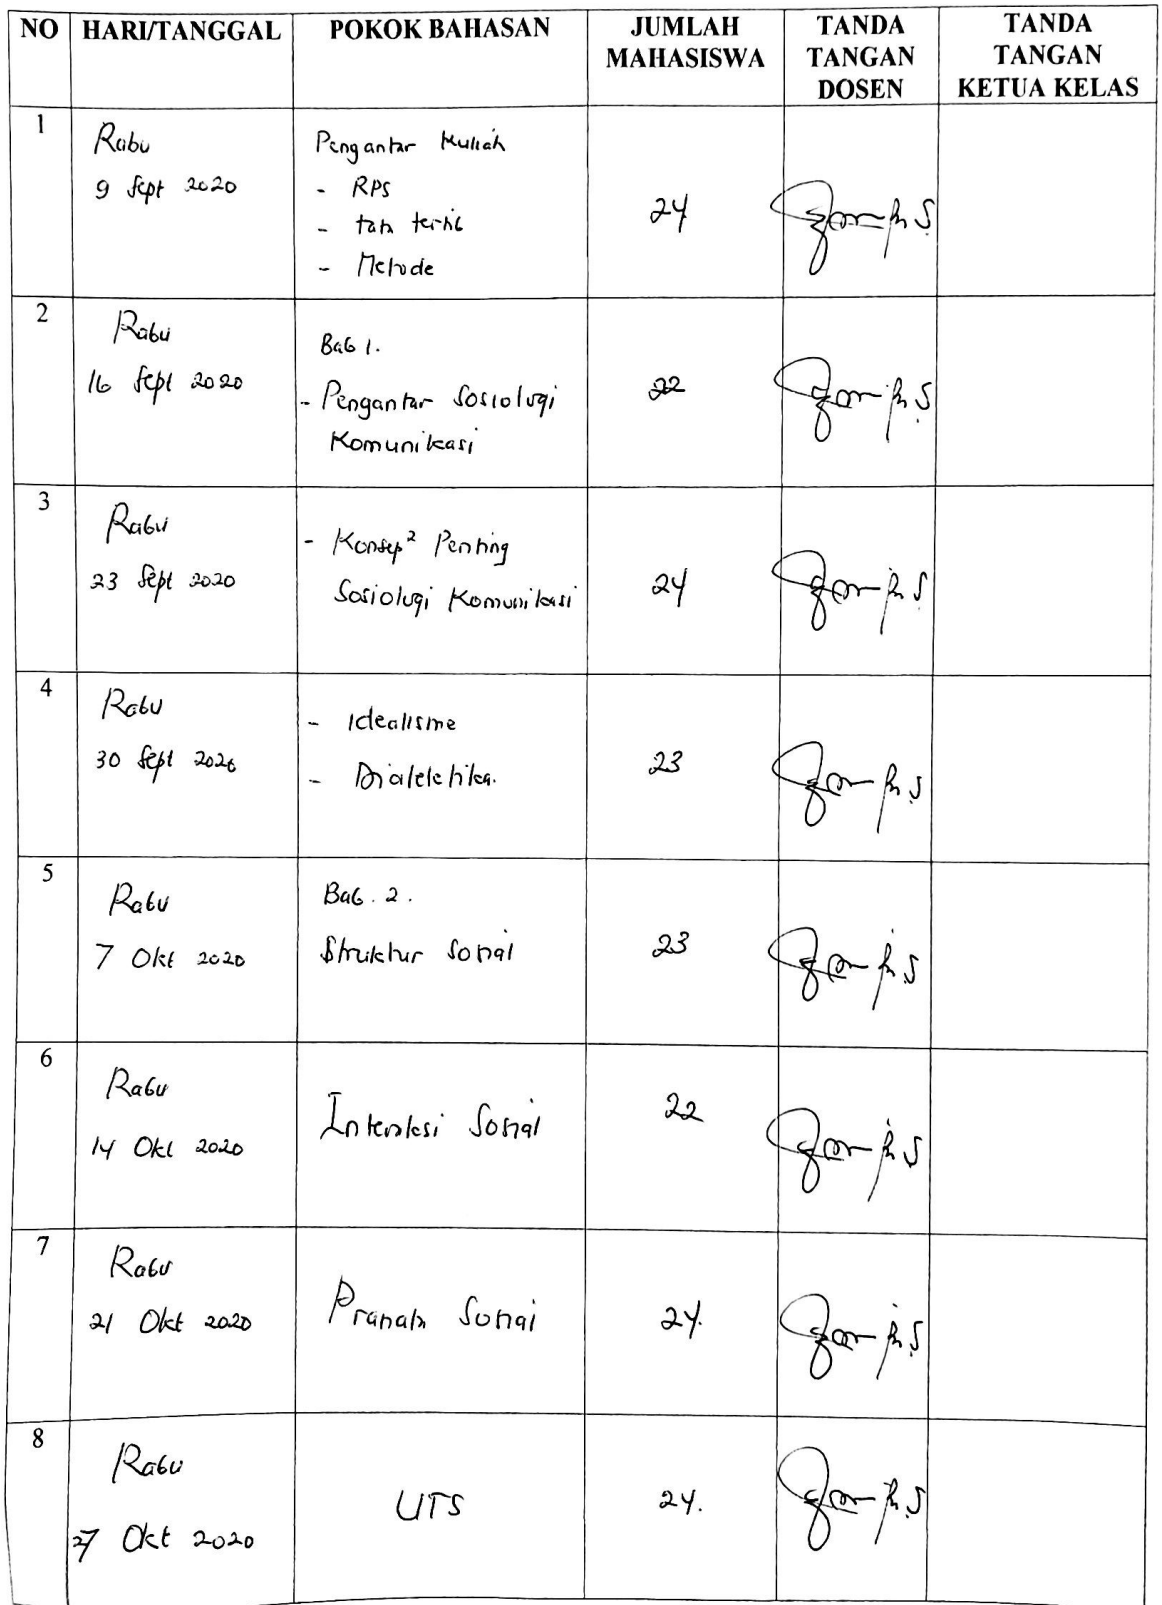 NO HARI/TANGGAL POKOK BAHASAN JUMLAH MAHASISWA TANDA TANGAN DOSEN TANDA TANGAN KETUA KELAS
1
Rabu
9 Sept 2020
Pengantar Kuliah
- RPS
- tata tertib
- Metode
24
2
Rabu
16 Sept 2020
Bab 1.
- Pengantar Sosiologi
Komunikasi
22
3
Rabu
23 Sept 2020
- Konsep² Penting
Sosiologi Komunikasi
24
4
Rabu
30 Sept 2020
- Idealisme
- Dialektika.
23
5
Rabu
7 Okt 2020
Bab. 2.
Struktur Sosial
23
6
Rabu
14 Okt 2020
Interaksi Sosial
22
7
Rabu
21 Okt 2020
Pranata Sosial
24.
8
Rabu
27 Okt 2020
UTS
24.